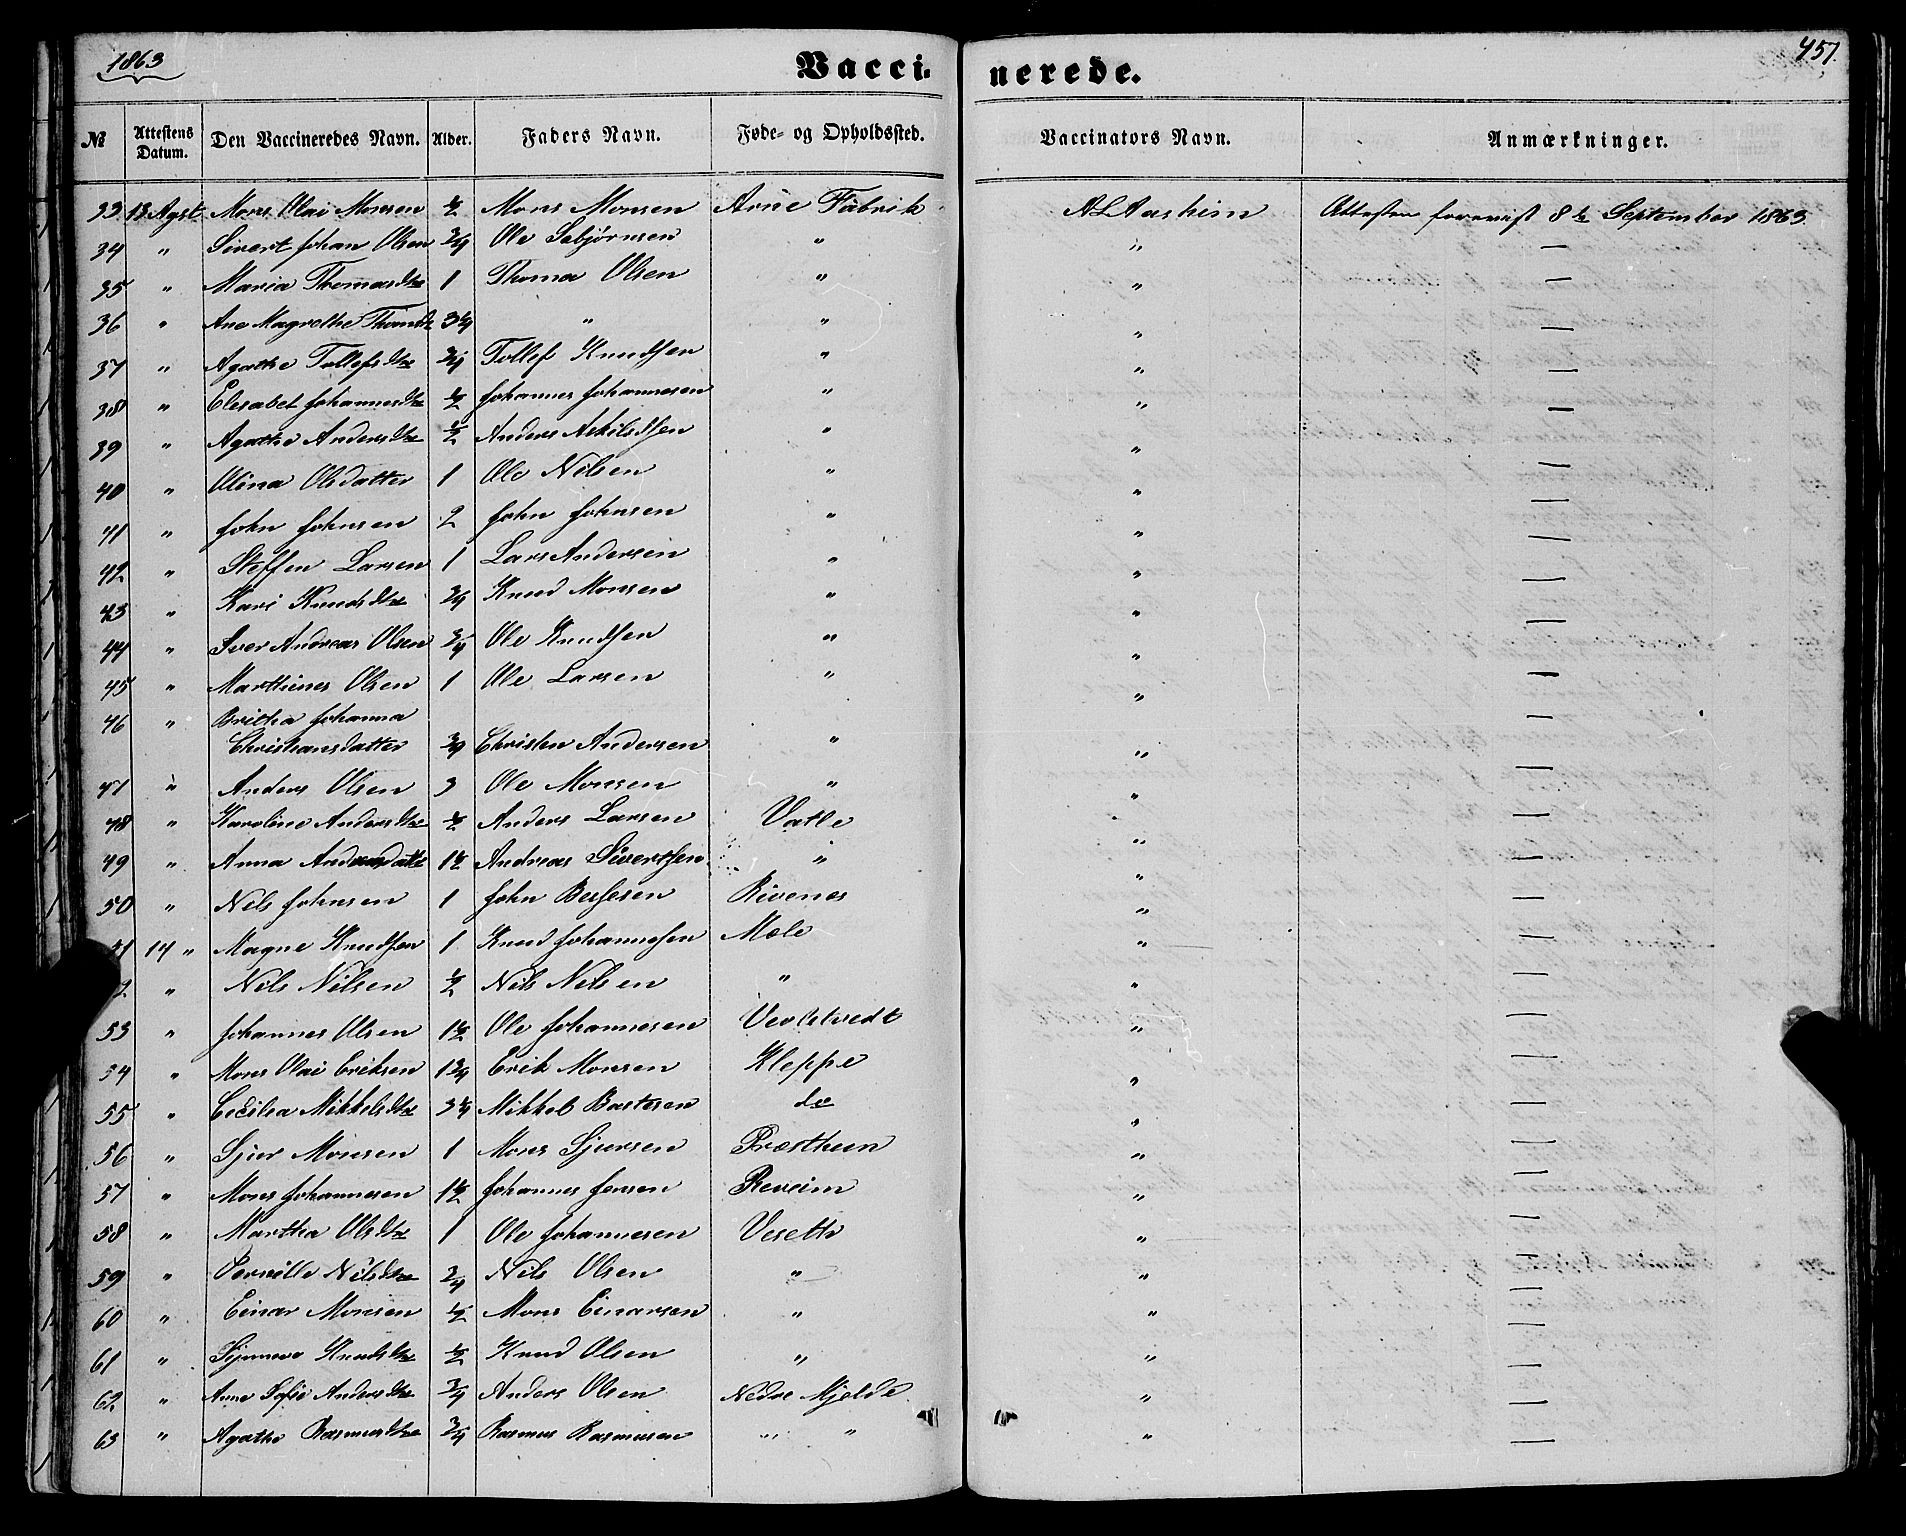 1863
457.
Vaccinerede.
№ Attestens Datum. Den Vaccineredes Navn. Alder. Faders Navn. Føde- og Opholdssted. Vaccinators Navn. Anmærkninger.
33 13 Agst Mons Olai Monsen ½ Mons Monsen Arne Fabrik ALAasheim Attesten forevist 8de September 1863.
34 " Sivert Johan Olsen ¾ Ole Sebjørnsen " " —
35 " Maria Thomasdtr 1 Thomas Olsen " " —
36 " Ane Magrethe Thomdtr 3¼ " " " —
37 " Agathe Tollefsdtr ¾ Tollef Knudsen " " —
38 " Elesabet Johannesdtr ½ Johannes Johannesen " " —
39 " Agathe Andersdtr ½ Anders Askildsen " " —
40 " Olina Olsdatter 1 Ole Nilsen " " —
41 " John Johnsen 2 John Johnsen " " —
42 " Steffen Larsen 1 Lars Andersen " " —
43 " Kari Knudsdtr ¾ Knud Monsen " " —
44 " Iver Andreas Olsen ¾ Ole Knudsen " " —
45 " Marthines Olsen 1 Ole Larsen " " —
46 " Britha Johanna
Christiansdatter ¾ Christen Andersen " " —
47 " Anders Olsen 3 Ole Monsen " " —
48 " Karoline Andersdtr ½ Anders Larsen Vatle " —
49 " Anna Andreasdatr 1½ Andreas Sivertsen " " —
50 " Nils Johnsen 1 John Bersesen Rivenes " —
51 14 " Magne Knudsen 1 Knud Johannesen Mæle " —
2. " Nils Nilsen ½ Nils Nilsen " " —
53 " Johannes Olsen 1½ Ole Johannesen Vevletvedt " —
54 " Mons Olai Eriksen 1¾ Erik Monsen Kleppe " —
55 " Cecilia Mikkelsdtr 3¼ Mikkel Bartesen do " —
56 " Sjur Monsen 1 Mons Sjursen Præsthun " —
57 " Mons Johannesen 1½ Johannes Jensen Reveim " —
58 " Martha Olsdtr 1 Ole Johannesen Veseth " —
59 " Pernille Nilsdtr ¾ Nils Olsen " " —
60 " Einar Monsen ½ Mons Einarsen " " —
61 " Sijnneva Knudsdtr ½ Knud Olsen " " —
62 " Anne Sofie Andersdtr ¾ Anders Olsen Nedre Mjelde " —
63 " Agathe Rasmusdtr ¾ Rasmus Rasmusen " " " —